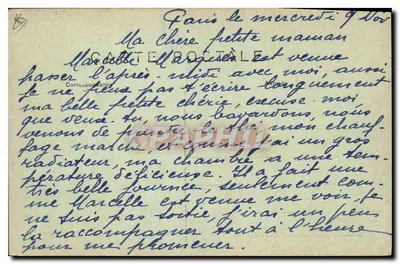 Paris le mercredi 9 Nov
Ma chère petite maman
CARTE POSTALE
Marcelle est venue
passer l'après-midi avec moi, aussi
je ne peux pas t'écrire longuement
ma belle petite chérie, excuse-moi,
que veux-tu, nous bavardons, nous
venons de mon chauf-
fage marche et quand j'ai un gros
radiateur, ma chambre a une tem-
pérature délicieuse. Il a fait une
très belle journée, seulement com-
me Marcelle est venue me voir, je
ne suis pas sortie, j'irai un peu
la raccompagner tout à l'heure
pour me promener.